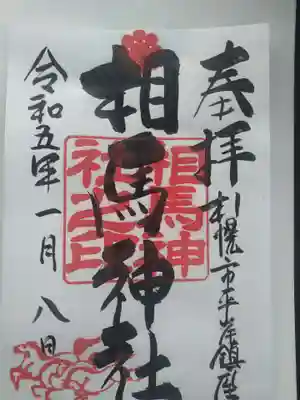 奉拝
札幌市平岸鎮座
相馬神社
相馬神
社之印
令和五年一月八日